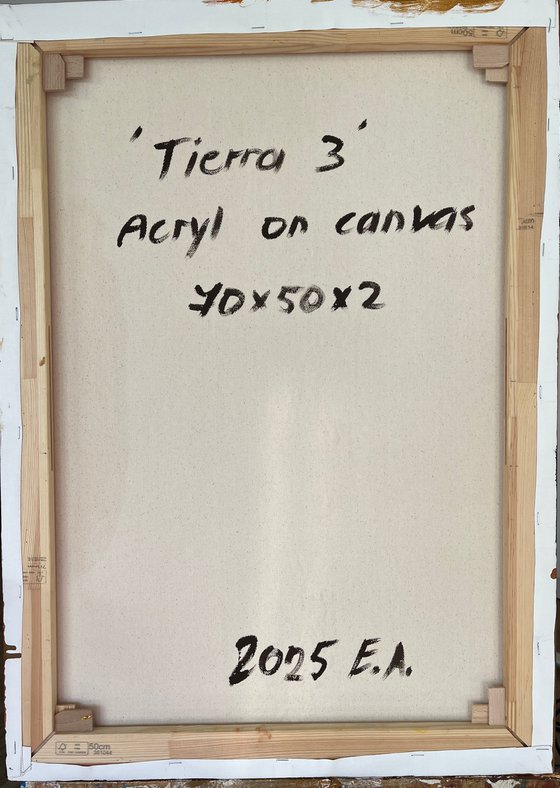 'Tierra 3'
Acryl on canvas
70x50x2
2025 E.A.
50cm